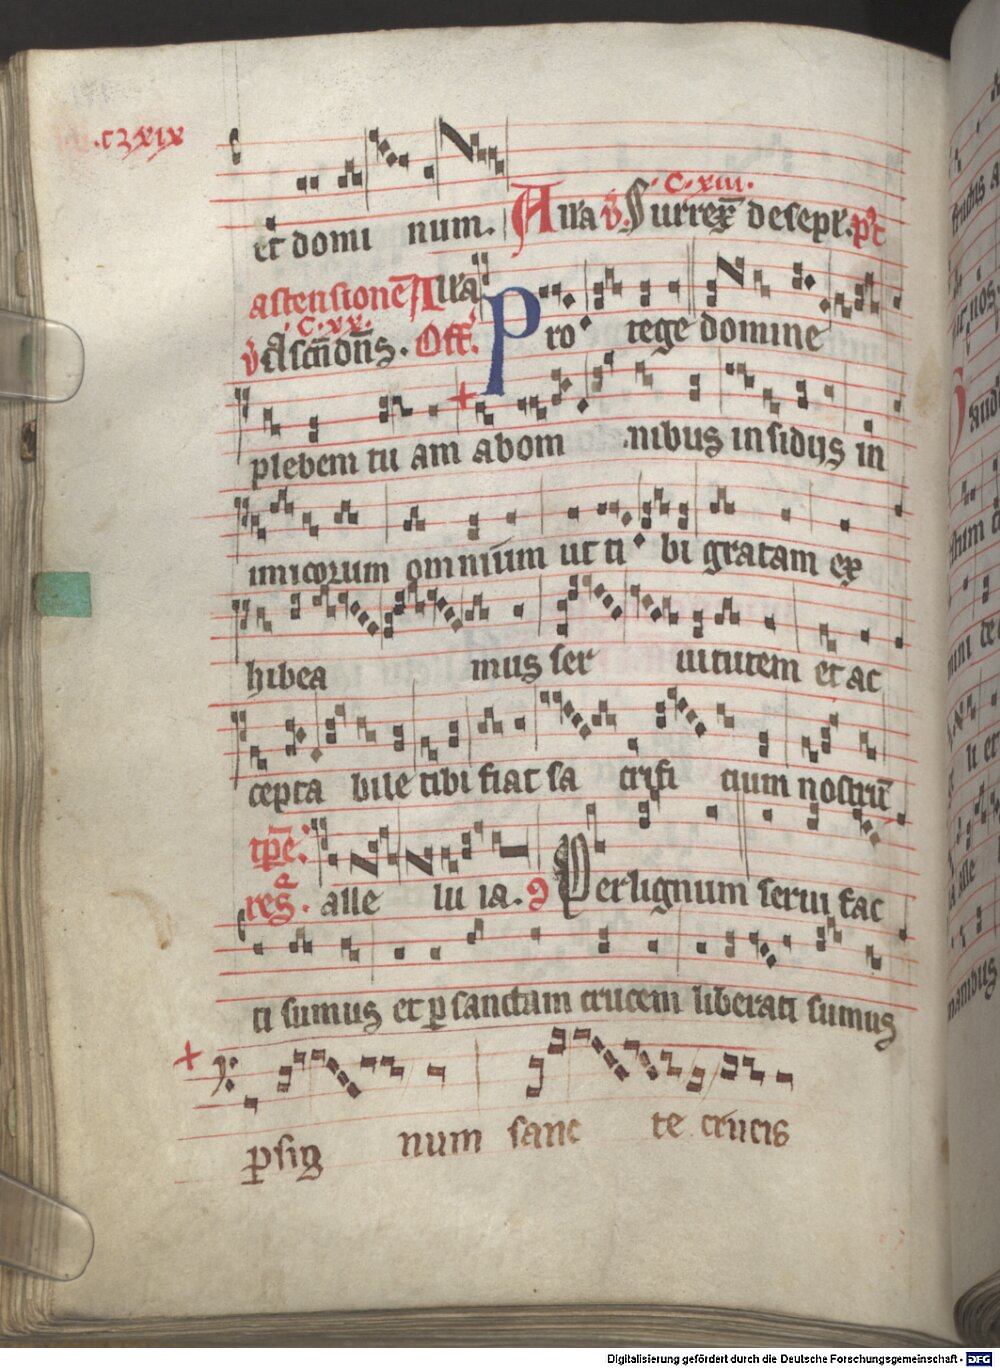 .cʒxix
et domi num. Alla v̄. Surrex̄ de sepl̄. pꝰt
.c.xiii.
astensionē Alla
.c.xx.
v̄ Ascēn dn̄s. Off̄. Pro tege domine
plebem tu am abom + nibus insidijs in
imicorum omnium ut ti bi gratam ex
hibea mus ser uitutem et ac
cepta bile tibi fiat sa crifi cium nostrū
tpē.
res̄. alle lu ia. ꝯ Per lignum serui fac
ti sumus et ꝑ sanctam crucem liberati sumus
+ ꝑ sig num sanc te crucis
Digitalisierung gefördert durch die Deutsche Forschungsgemeinschaft - DFG